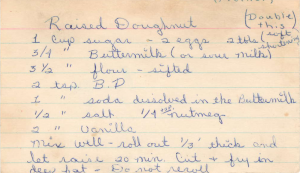 Raised Doughnut (Double this)
1 Cup sugar - 2 eggs 2 tbls (soft shortening)
3/4 " Buttermilk (or sour milk)
3 1/2 " flour - sifted
2 tsp. B.P
1 " soda dissolved in the Buttermilk
1/2 " salt 1/4 tsp nutmeg
2 " Vanilla
Mix well - roll out 1/3" thick and
let raise 20 min. Cut & fry in
deep fat - Do not reroll